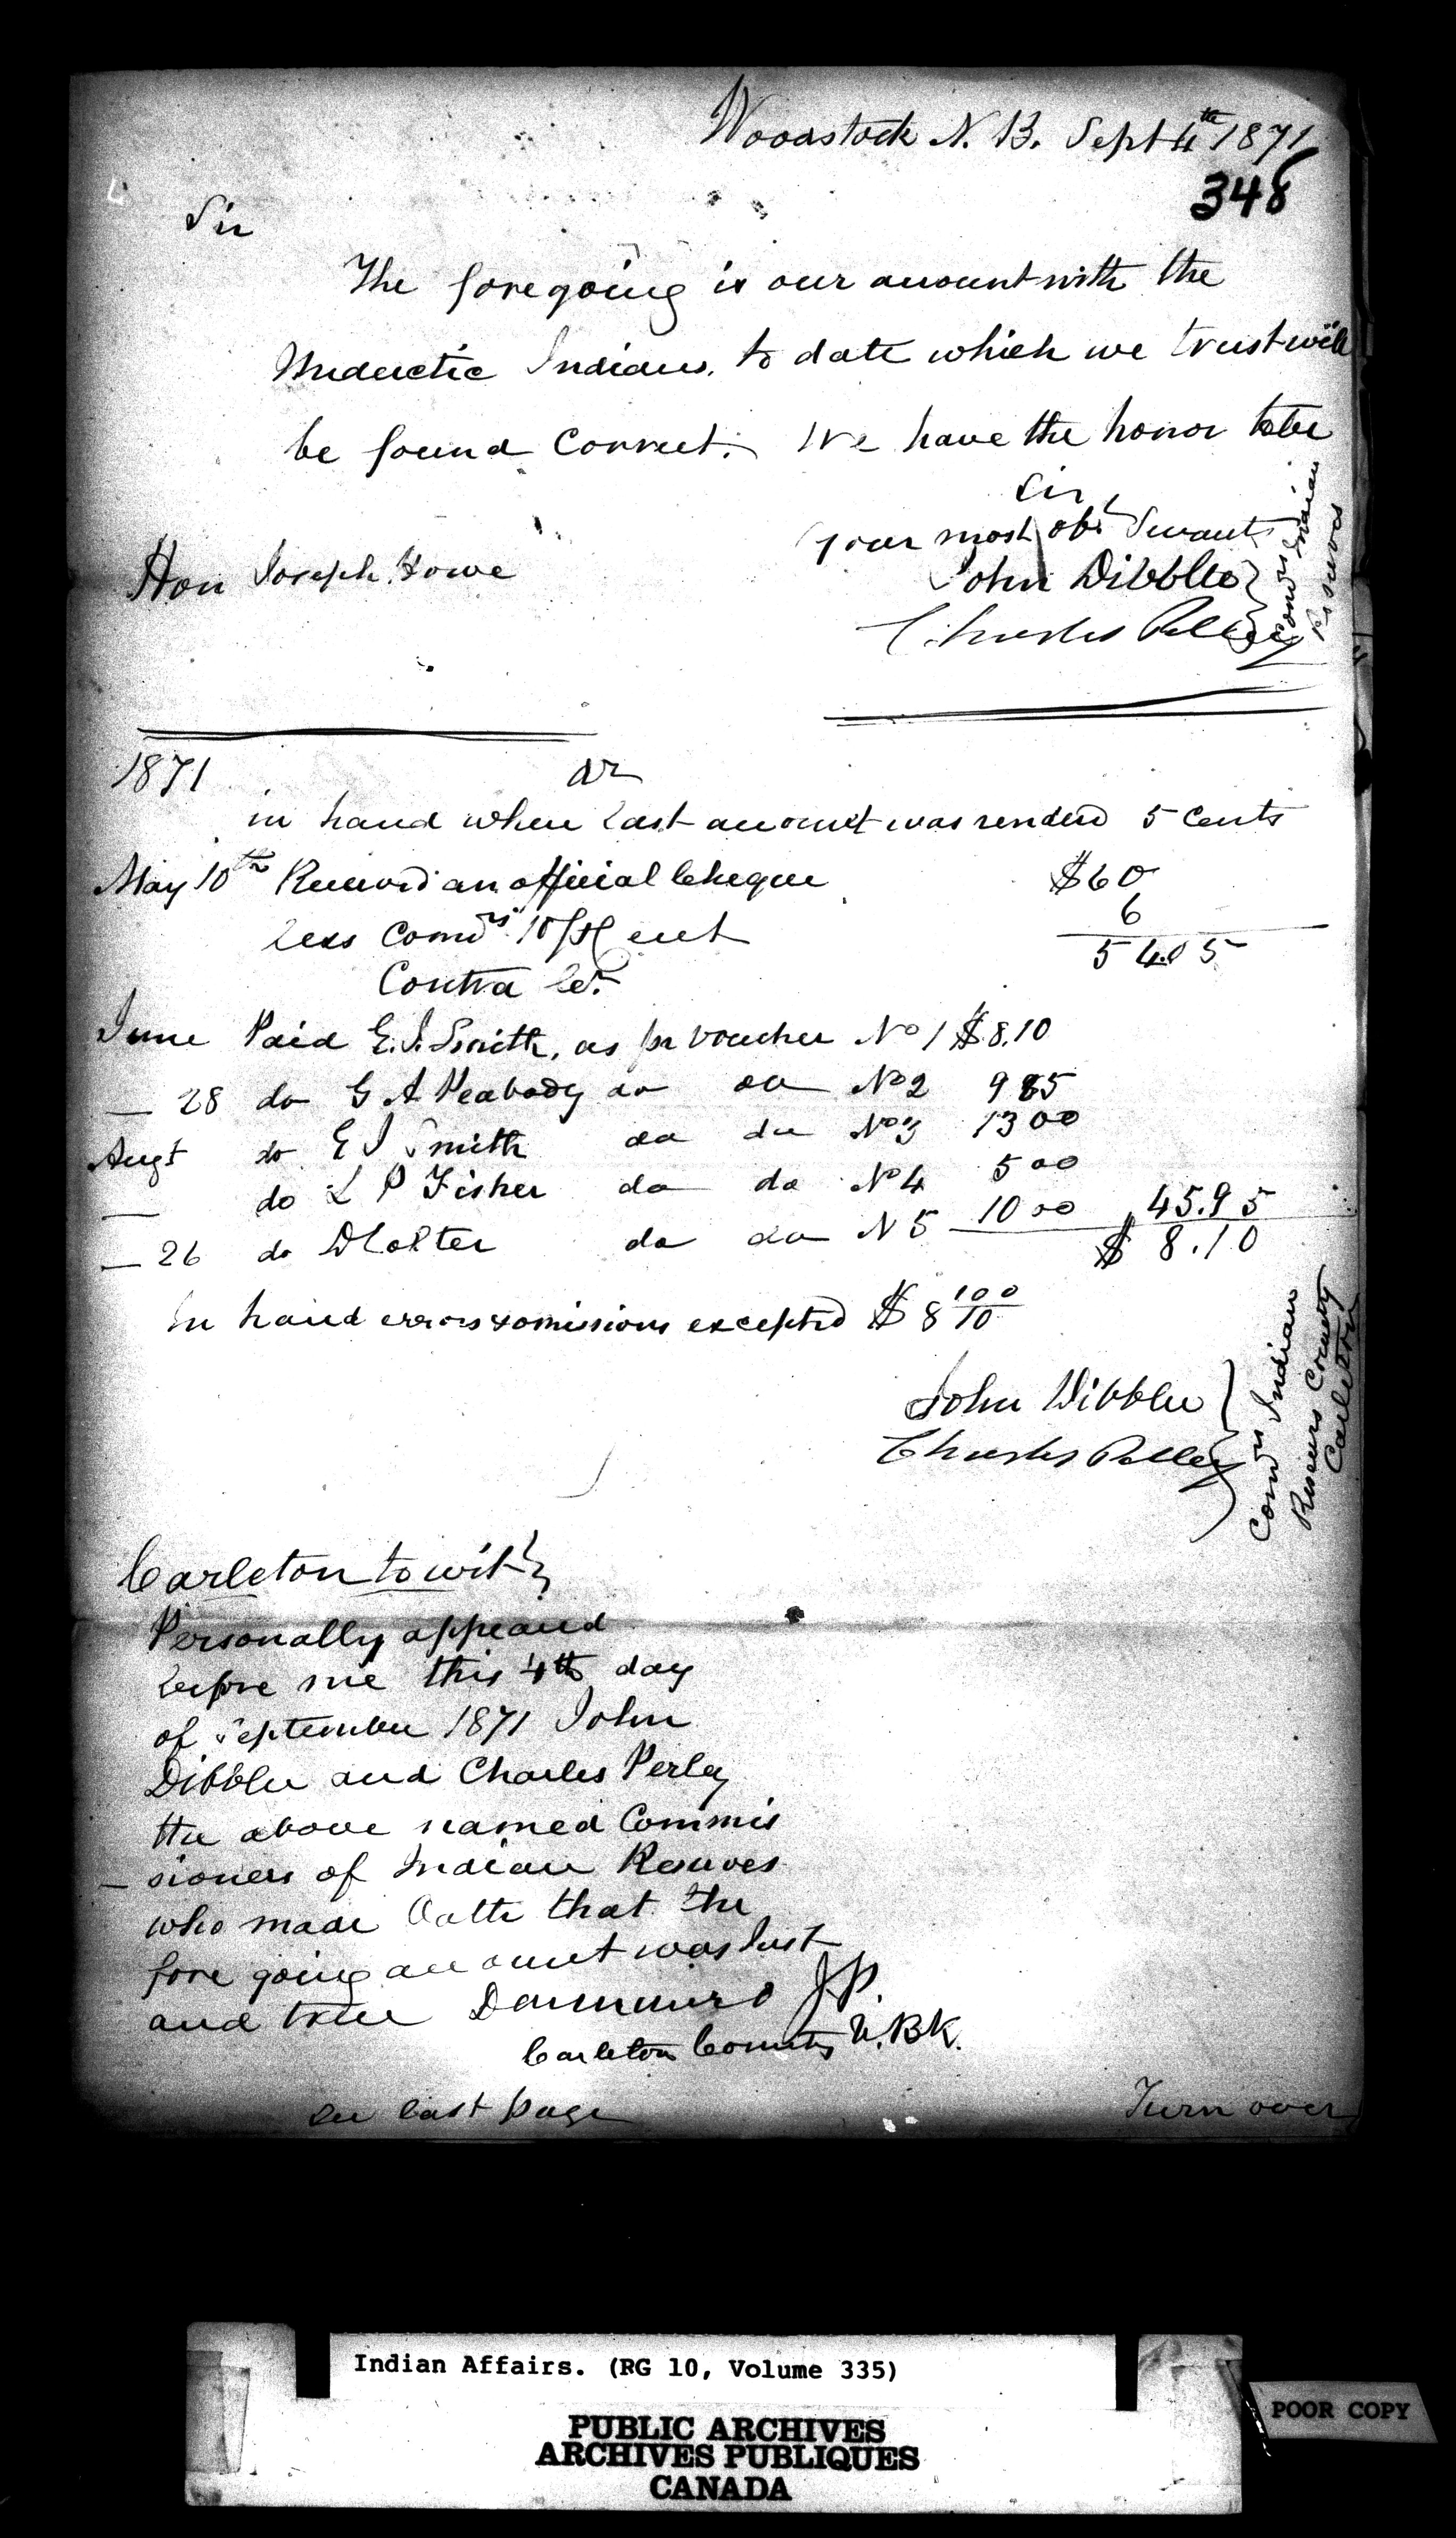 Woodstock N. B. Sept 4th 1871
348
Sir
The foregoing is our account with the
Meductic Indians, to date which we trust will
be found Correct. We have the honor to be
Sir,
your most obt Servants
Hon Joseph Howe
John Dibblee }
Charles Perley
Comrs Indian
Reserves
1871 Dr
in hand when last account was rendered 5 Cents
May 10th Received an official Cheque $60
less Comrs 10 Pr Cent 6
54.05
Contra Cr.
June Paid E. J. Smith, as pr voucher No 1 $8.10
— 28 do G A Peabody do do No 2 9 85
Augt do E J Smith do do No 3 13 00
— do L P Fisher do do No 4 5 00
— 26 do do do N 5 10 00 45.95
$ 8.10
In hand errors & omissions excepted $ 8 100/10
John Dibblee }
Charles Perley
Comrs Indian
Reserves County
Carleton
Carleton to wit }
Personally appeared
before me this 4th day
of September 1871 John
Dibblee and Charles Perley
the above named Commis
– sioners of Indian Reserves
who made Oath that the
fore going account was Just
and true J.P.
Carleton County N.BK.
See last page
Turn over
Indian Affairs. (RG 10, Volume 335)
PUBLIC ARCHIVES
ARCHIVES PUBLIQUES
CANADA
POOR COPY